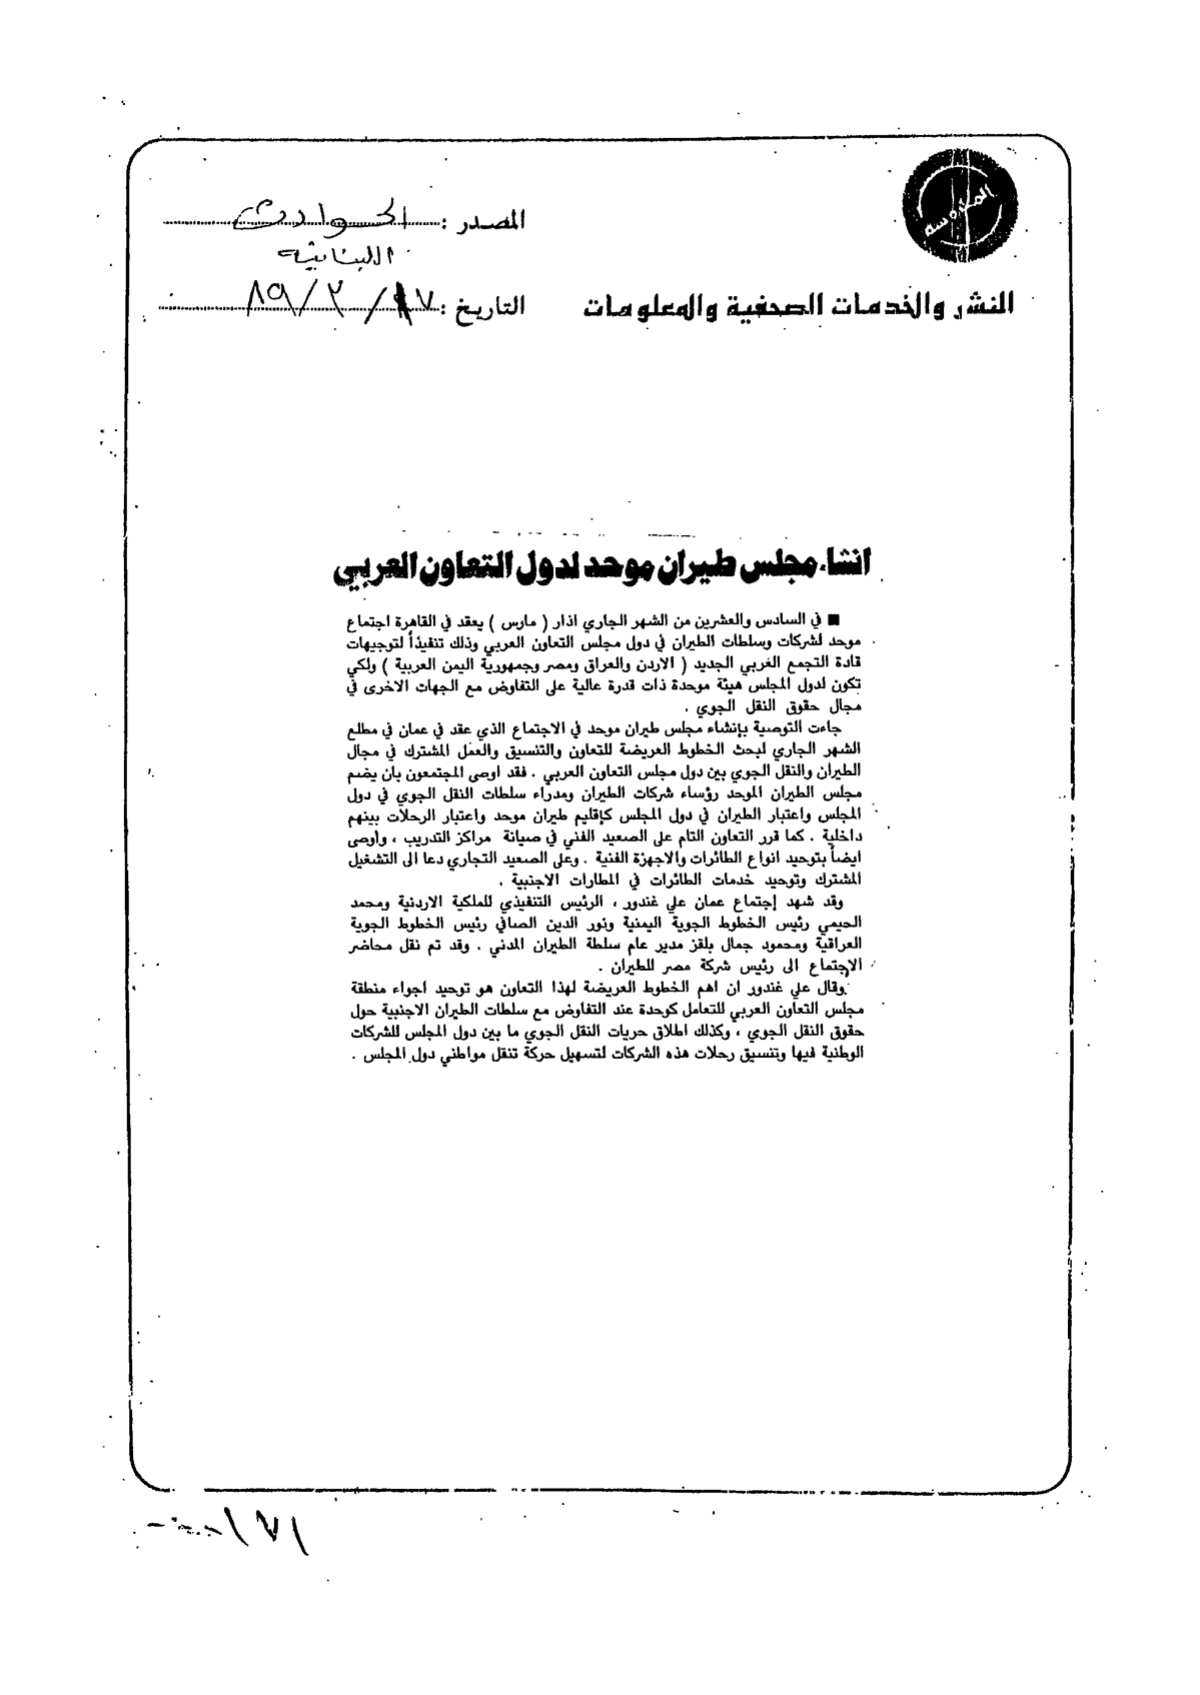 المصدر : الحوادث
اللبنانية
النشر والخدمات الصحفية والمعلومات
التاريخ : ١٧/٣/٨٩
انشاء مجلس طيران موحد لدول التعاون العربي
■ في السادس والعشرين من الشهر الجاري اذار ( مارس ) يعقد في القاهرة اجتماع
موحد لشركات وسلطات الطيران في دول مجلس التعاون العربي وذلك تنفيذاً لتوجيهات
قادة التجمع العربي الجديد ( الاردن والعراق ومصر وجمهورية اليمن العربية ) ولكي
تكون لدول المجلس هيئة موحدة ذات قدرة عالية على التفاوض مع الجهات الاخرى في
مجال حقوق النقل الجوي .
جاءت التوصية بإنشاء مجلس طيران موحد في الاجتماع الذي عقد في عمان في مطلع
الشهر الجاري لبحث الخطوط العريضة للتعاون والتنسيق والعمل المشترك في مجال
الطيران والنقل الجوي بين دول مجلس التعاون العربي . فقد اوصى المجتمعون بان يضم
مجلس الطيران الموحد رؤساء شركات الطيران ومدراء سلطات النقل الجوي في دول
المجلس واعتبار الطيران في دول المجلس كإقليم طيران موحد واعتبار الرحلات بينهم
داخلية . كما قرر التعاون التام على الصعيد الفني في صيانة مراكز التدريب ، واوصى
ايضاً بتوحيد انواع الطائرات والاجهزة الفنية . وعلى الصعيد التجاري دعا الى التشغيل
المشترك وتوحيد خدمات الطائرات في المطارات الاجنبية .
وقد شهد إجتماع عمان علي غندور ، الرئيس التنفيذي للملكية الاردنية ومحمد
الحيمي رئيس الخطوط الجوية اليمنية ونور الدين الصافي رئيس الخطوط الجوية
العراقية ومحمود جمال بلقز مدير عام سلطة الطيران المدني . وقد تم نقل محاضر
الاجتماع الى رئيس شركة مصر للطيران .
وقال علي غندور ان اهم الخطوط العريضة لهذا التعاون هو توحيد اجواء منطقة
مجلس التعاون العربي للتعامل كوحدة عند التفاوض مع سلطات الطيران الاجنبية حول
حقوق النقل الجوي ، وكذلك اطلاق حريات النقل الجوي ما بين دول المجلس للشركات
الوطنية فيها وتنسيق رحلات هذه الشركات لتسهيل حركة تنقل مواطني دول المجلس .